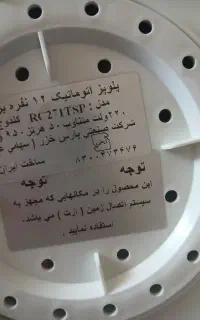 پلوپز اتوماتیک ۱۲ نفره
مدل : RC271TSP
۲۲۰ولت متناوب ۵۰ هرتز
شرکت صنعتی پارس خزر ( سهامی
ساخت ایران
توجه
توجه
این محصول را در مکانهایی که مجهز به
سیستم اتصال زمین ( ارت ) می باشد.
استفاده نمایید .